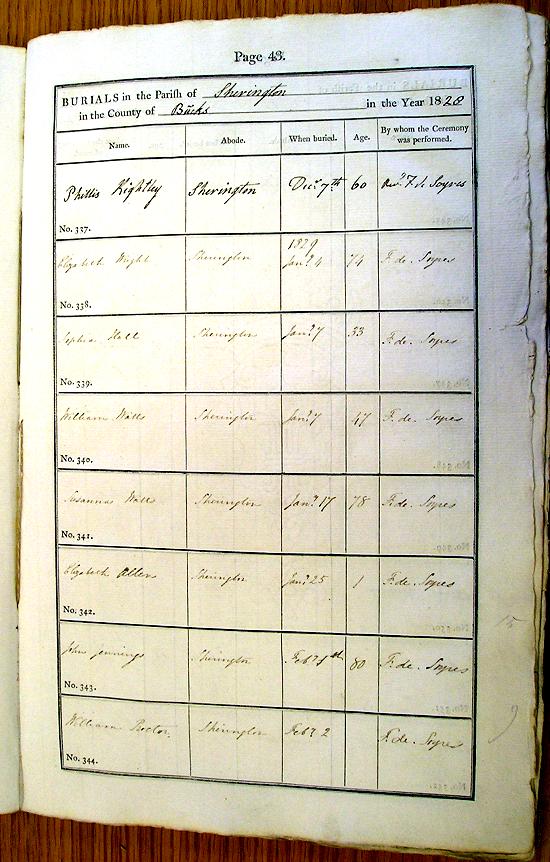 Page 43.
BURIALS in the Parish of Sherington
in the County of Bucks in the Year 1828
Name. Abode. When buried. Age. By whom the Ceremony was performed.
Phillis Kightley Sherington Decr. 7th 60 Revd. F de Soyres
No. 337.
1829
Elizabeth Wright Sherington Jany. 4 74 F. de Soyres
No. 338.
Sophia Hall Sherington Jany. 7 33 F. de Soyres
No. 339.
William Watts Sherington Jany. 7 47 F. de Soyres
No. 340.
Susannah Watts Sherington Jany. 17 78 F. de Soyres
No. 341.
Elizabeth Allen Sherington Jany. 25 1 F. de Soyres
No. 342.
John Jennings Sherington Feby. 80 F. de Soyres
No. 343.
William Proctor Sherington Feby. 2 F. de Soyres
No. 344.